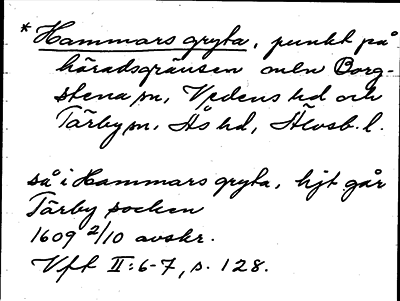 * Hammars gryta, punkt på
häradsgränsen meln Borg-
stena sn, Vedens hd och
Tärby sn. Ås hd, Älvsb. l.
så i Hammars gryta, hjt går
Tärby socken
1609 2/10 avskr.
Vft II:6-7, s. 128.